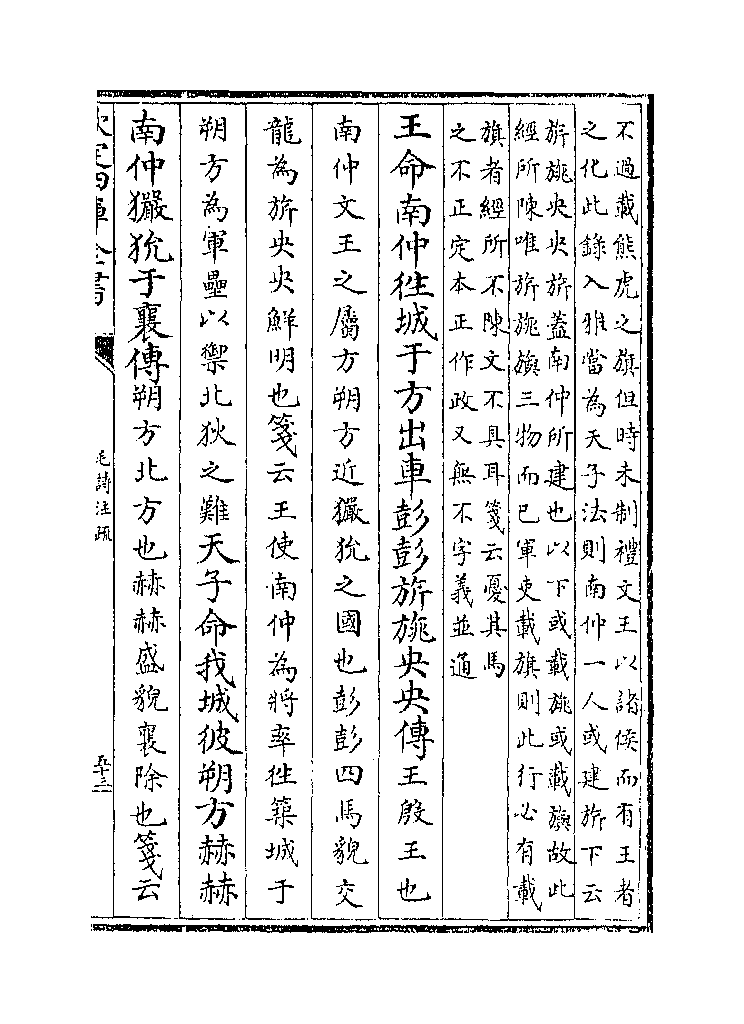 不過載熊虎之旗但時未制禮文王以諸侯而有王者
之化此錄入雅當為天子法則南仲一人或建旂下云
旂旐央央旂蓋南仲所建也以下或載旐或載旟故此
經所陳唯旂旐旟三物而已軍吏載旗則此行必有載
旗者經所不陳文不具耳箋云憂其馬
之不正定本正作政又無不字義並通
王命南仲徃城于方出車彭彭旂旐央央傳王殷王也
南仲文王之屬方朔方近玁狁之國也彭彭四馬貌交
龍為旂央央鮮明也箋云王使南仲為將率徃築城于
朔方為軍壘以禦北狄之難天子命我城彼朔方赫赫
南仲玁狁于襄傳朔方北方也赫赫盛貌襄除也箋云
欽定四庫全書
毛詩注疏
五十三